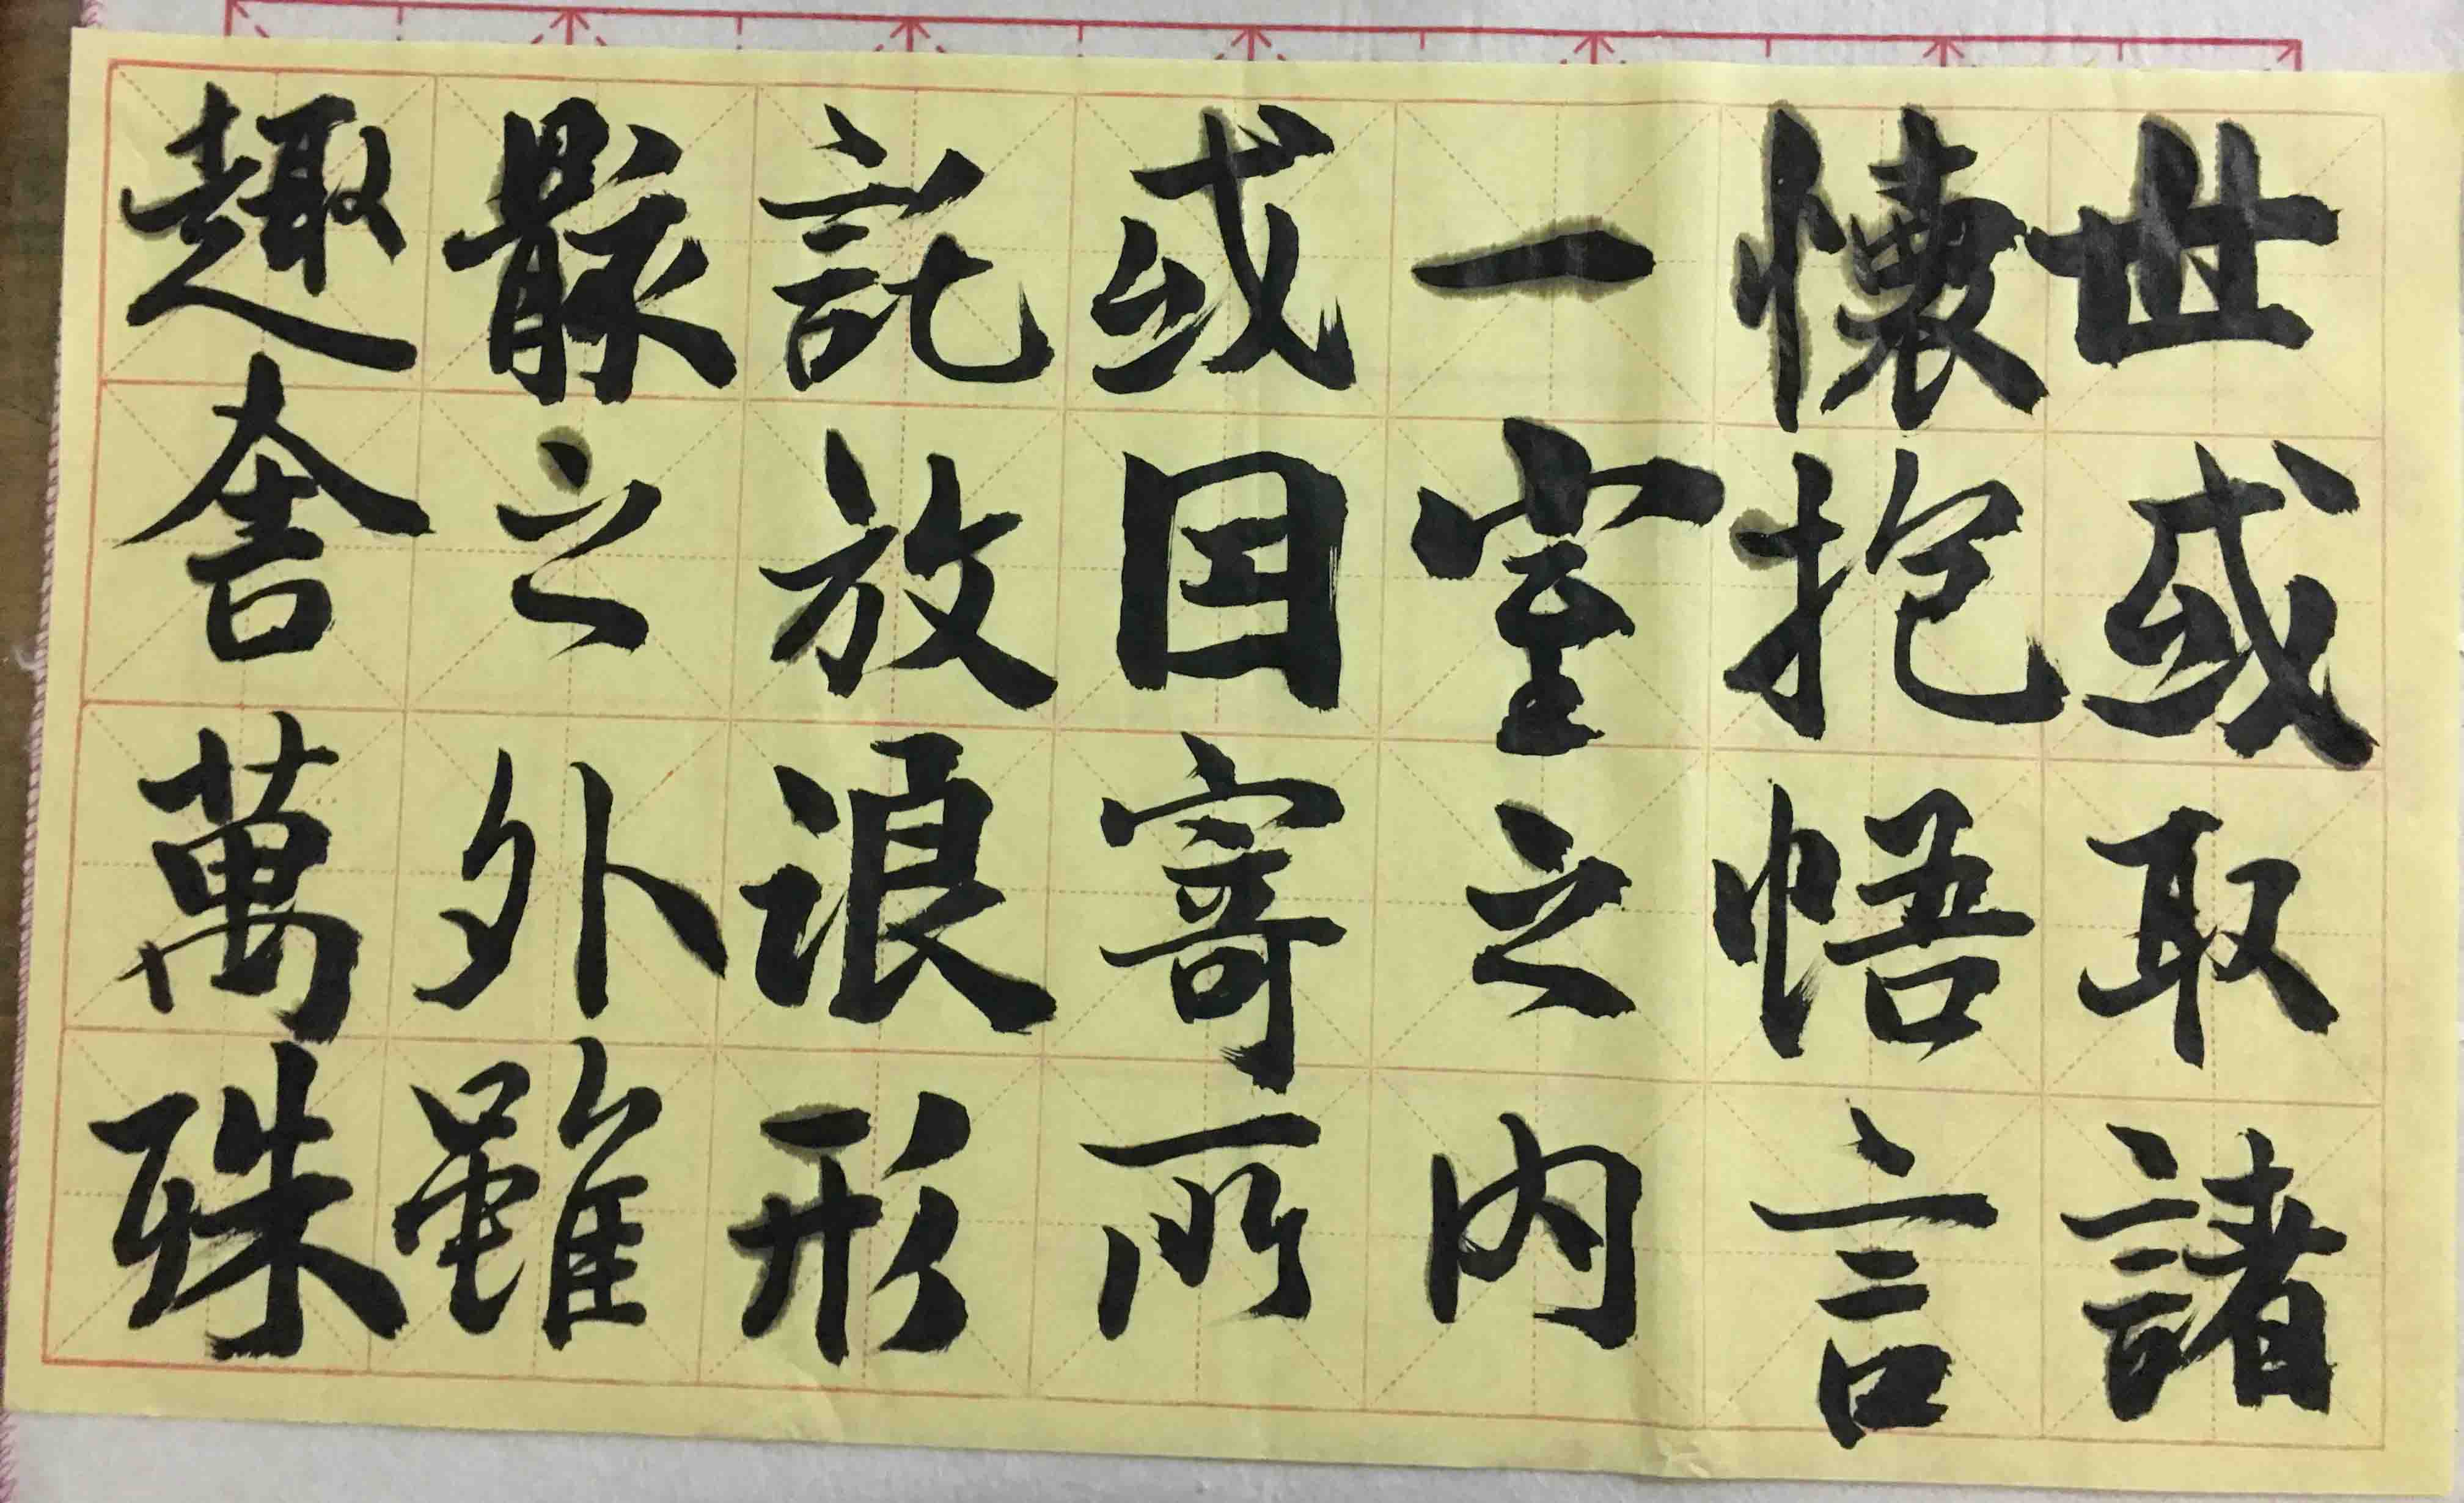 世或取諸
懷抱悟言
一室之内
或因寄所
託放浪形
骸之外雖
趣舍萬殊